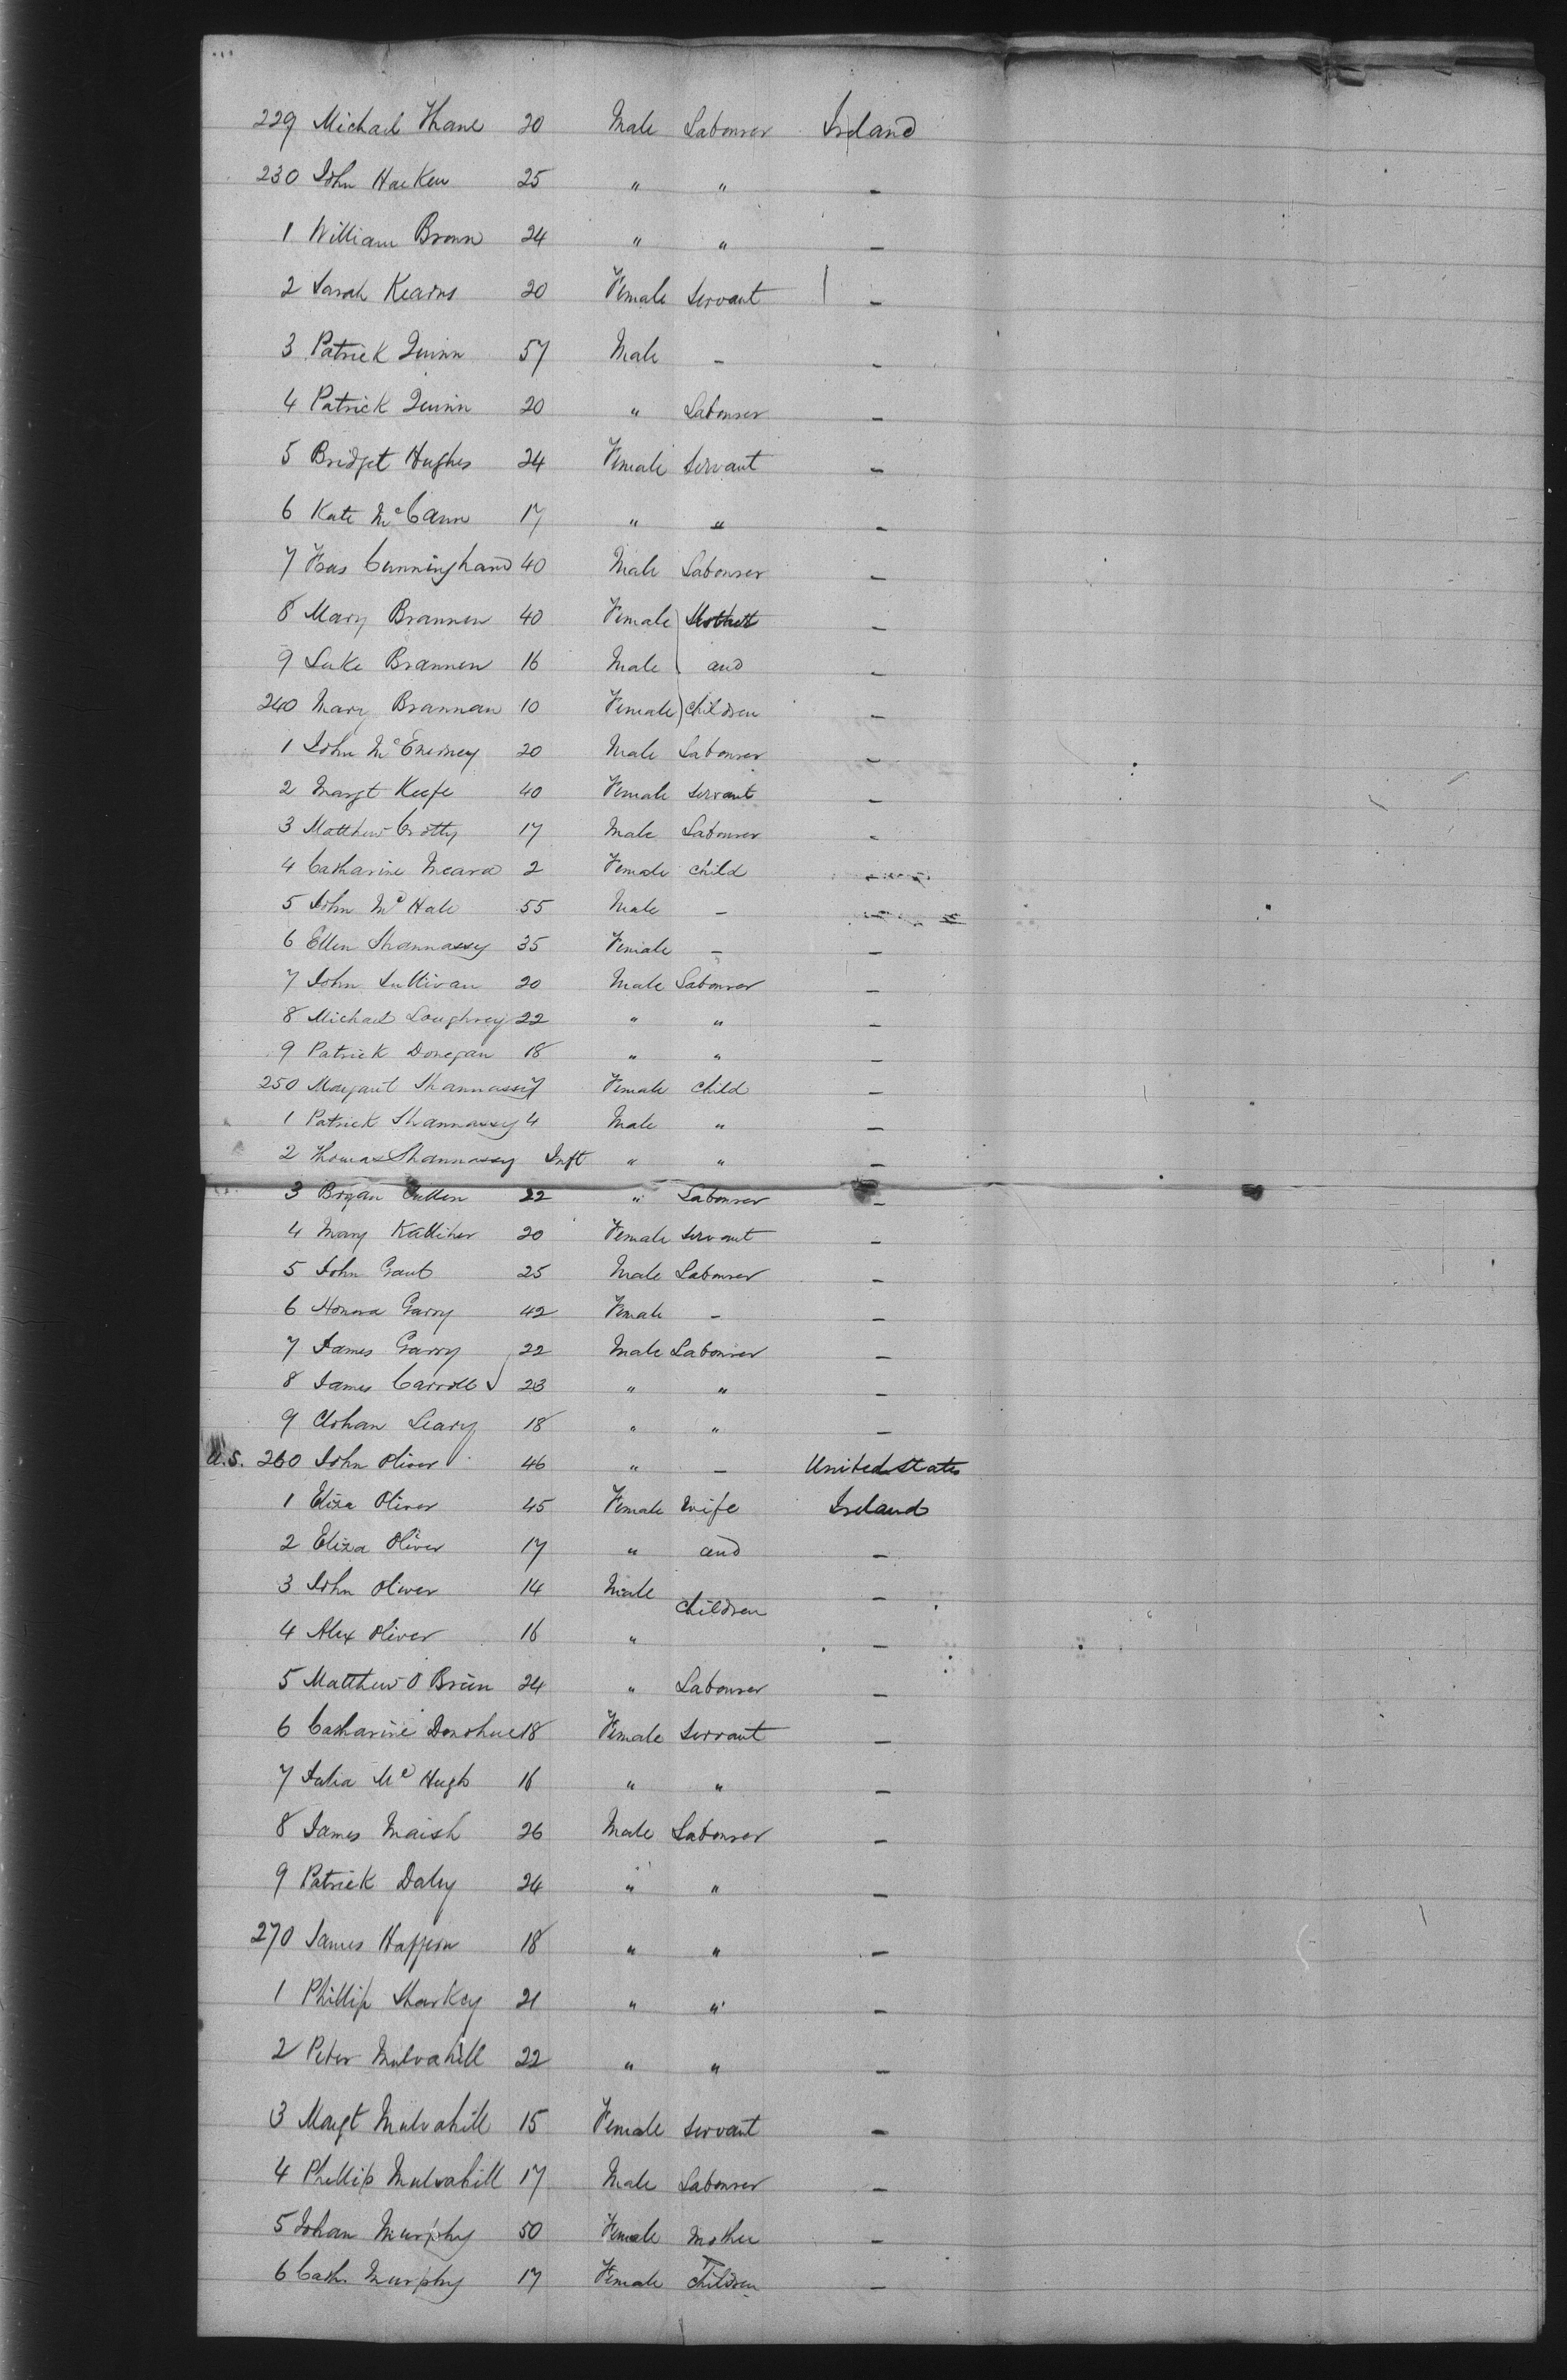 229 Michael Thane 20 Male Labourer Ireland
230 John Hacken 25 " " -
1 William Brown 24 " " -
2 Sarah Kearns 20 Female Servant -
3 Patrick Quinn 57 Male - -
4 Patrick Quinn 20 " Labourer -
5 Bridget Hughes 24 Female Servant -
6 Kate McCann 17 " " -
7 Fras Cunningham 40 Male Labourer -
8 Mary Brannen 40 Female Mother -
9 Luke Brannen 16 Male and -
240 Mary Brannan 10 Female Children -
1 John McEnerney 20 Male Labourer -
2 Margt Keefe 40 Female Servant -
3 Matthew Crotty 17 Male Labourer -
4 Catharine Meara 2 Female Child -
5 John McHale 55 Male - -
6 Ellen Shannassy 35 Female - -
7 John Sullivan 20 Male Labourer -
8 Michael Loughrey 22 " " -
9 Patrick Donegan 18 " " -
250 Margaret Shannassy 7 Female Child -
1 Patrick Shannassy 4 Male " -
2 Thomas Shannassy Inft " " -
3 Bryan Cullen 22 " Labourer -
4 Mary Kalliher 20 Female Servant -
5 John Gaut 25 Male Labourer -
6 Honora Garry 42 Female - -
7 James Garry 22 Male Labourer -
8 James Carroll 23 " " -
9 Johan Leary 18 " " -
U.S. 260 John Oliver 46 " - United States
1 Eliza Oliver 45 Female Wife Ireland
2 Eliza Oliver 17 " and -
3 John Oliver 14 Male Children -
4 Alex Oliver 16 " -
5 Matthew O Brien 24 " Labourer -
6 Catharine Donohue 18 Female Servant -
7 Julia McHugh 16 " " -
8 James Maish 26 Male Labourer -
9 Patrick Daley 24 " " -
270 James 18 " " -
1 Phillip Sharkey 21 " " -
2 Peter Mulvahill 22 " " -
3 Margt Mulvahill 15 Female Servant -
4 Phillip Mulvahill 17 Male Labourer -
5 Johan Murphy 50 Female Mother -
6 Cath Murphy 17 Female Children -